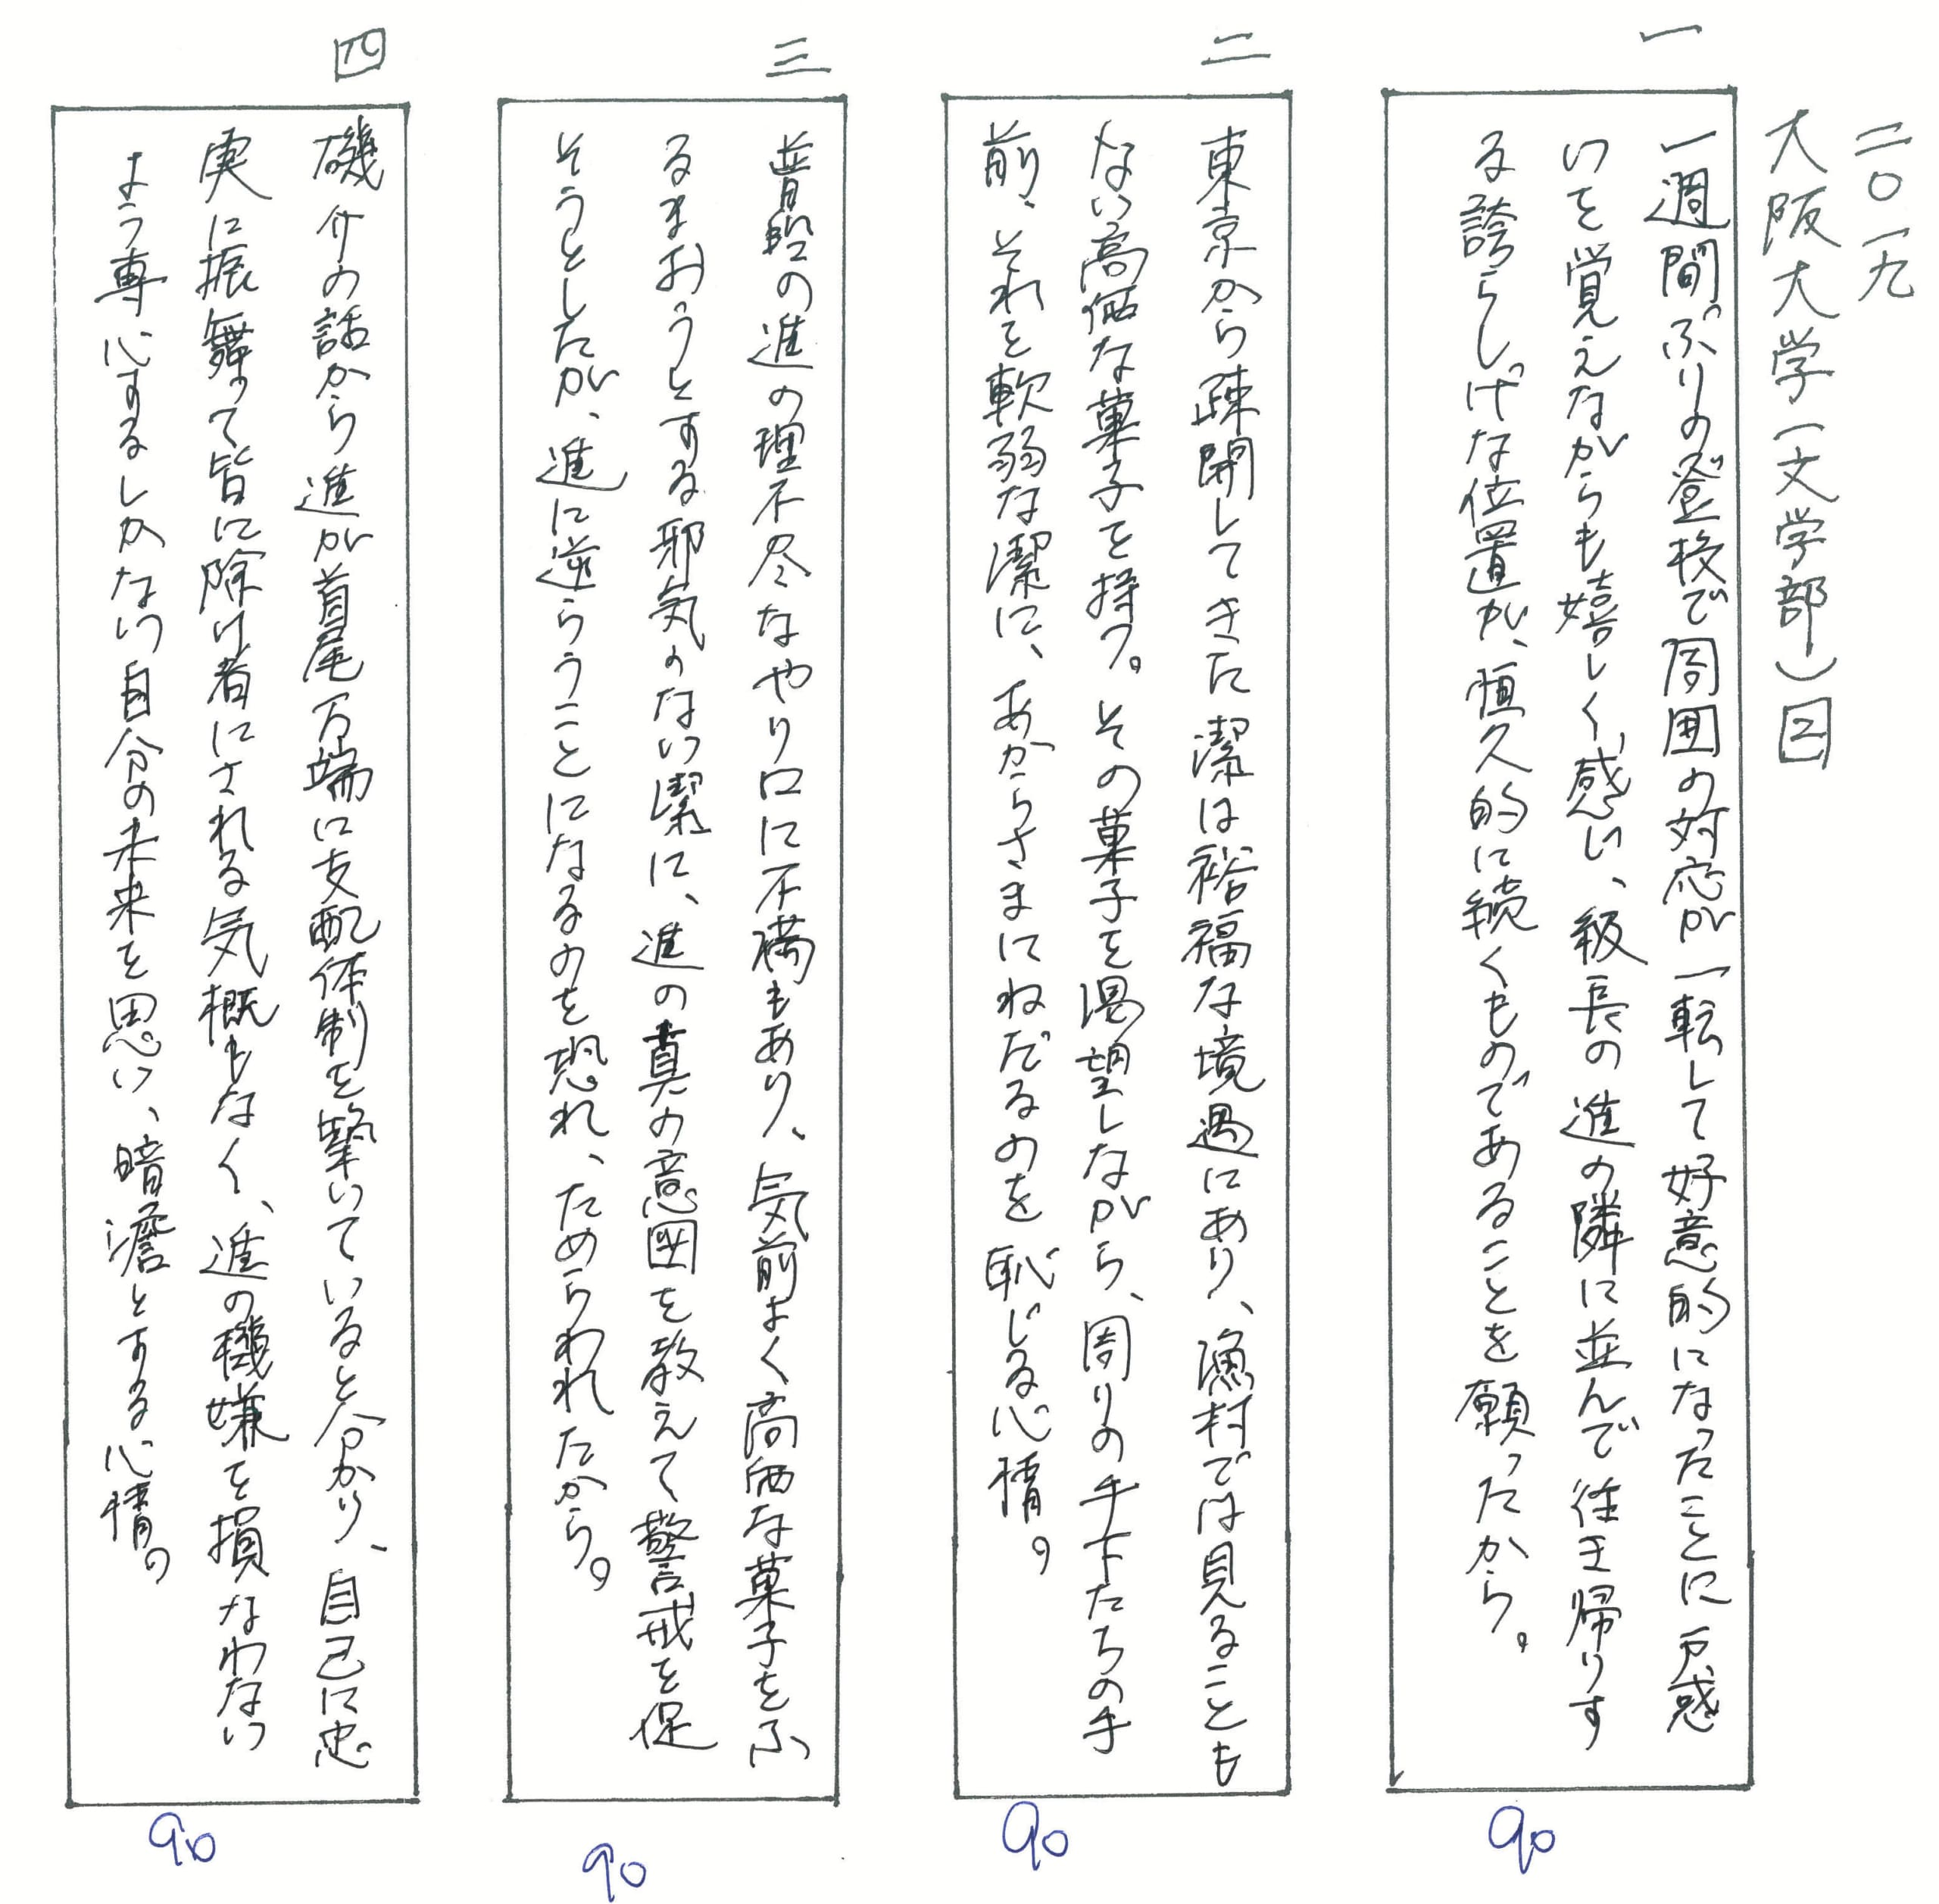 二〇一九
大阪大学（文学部）二
一
一週間ぶりの登校で周囲の対応が一転して好意的になったことに戸惑
いを覚えながらも嬉しく感じ、級長の進の隣に並んで往き帰りす
る誇らしげな位置が、恒久的に続くものであることを願ったから。
90
二
東京から疎開してきた潔は裕福な境遇にあり、漁村では見ることも
ない高価な菓子を持つ。その菓子を渇望しながら、周りの手下たちの手
前、それを軟弱な潔に、あからさまにねだるのを恥じる心情。
90
三
普段の進の理不尽なやり口に不満もあり、気前よく高価な菓子をふ
るまおうとする邪気のない潔に、進の真の意図を教えて警戒を促
そうとしたが、進に逆らうことになるのを恐れ、ためらわれたから。
90
四
磯介の話から進が首尾万端に支配体制を撃いていると分かり、自己に忠
実に振舞って皆に除け者にされる気概もなく、進の機嫌を損なわない
よう専心するしかない自分の未来を思い、暗澹とする心情。
90